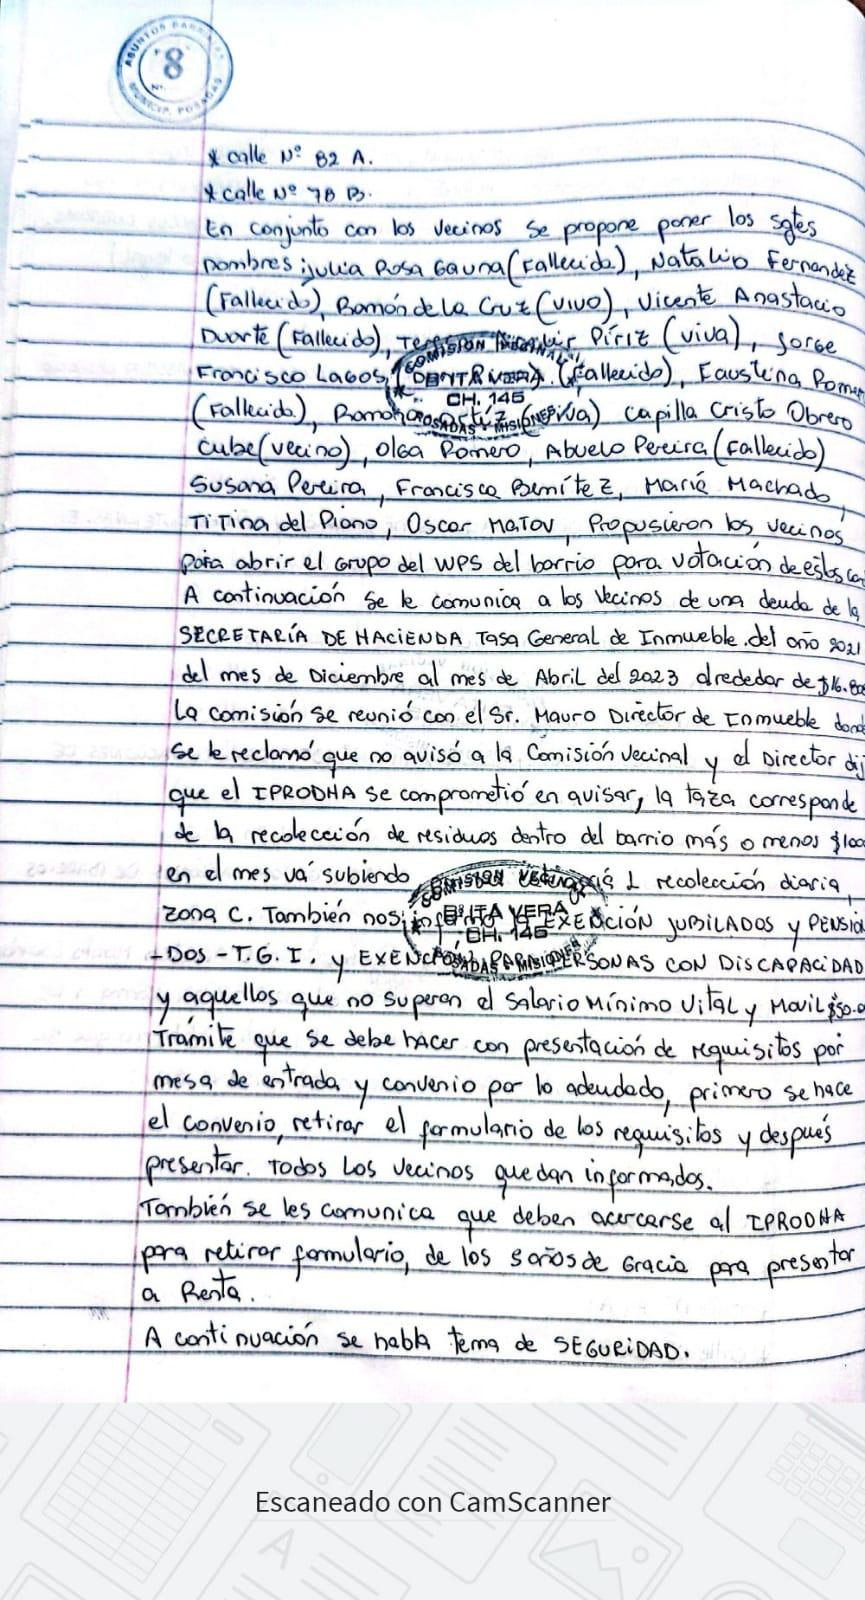 ASUNTOS BARRIALES
8
MUNICIP. POSADAS
* calle Nº 82 A.
* calle Nº 78 B.
En conjunto con los vecinos se propone poner los sgtes
nombres: julia Rosa Gauna (Fallecida), Natalio Fernandez
(Fallecido), Ramón de La Cruz (vivo), Vicente Anastacio
Duarte (Fallecido), Píriz (viva), Jorge
Francisco Lagos, (Fallecido), Faustina
(Fallecida), Ramona Ortíz (viva) Capilla Cristo Obrero
cube (vecino), Olga Romero, Abuelo Pereira (Fallecido)
Susana Pereira, Francisca Benítez, María Machado,
Titina del Piano, Oscar Matov, Propusieron los vecinos
para abrir el Grupo del WPS del barrio para votación de estos
A continuación se le comunica a los vecinos de una deuda de la
SECRETARÍA DE HACIENDA Tasa General de Inmueble del año 2021
del mes de Diciembre al mes de Abril del 2023 alrededor de
La comisión se reunió con el Sr. Mauro Director de Inmueble
se le reclamó que no avisó a la Comisión vecinal y el Director
que el IPRODHA se comprometió en avisar, la taza corresponde
de la recolección de residuos dentro del barrio más o menos
en el mes vá subiendo 1 recolección diaria,
zona C. También nos informó EXENCIÓN JUBILADOS y
-DOS - T.G.I. y EXENCIÓN PARA PERSONAS CON DISCAPACIDAD
y aquellos que no superan el Salario Mínimo Vital y Movil
Trámite que se debe hacer con presentación de requisitos por
mesa de entrada y convenio por lo adeudado, primero se hace
el convenio, retirar el formulario de los requisitos y después
presentar. Todos Los vecinos quedan informados.
También se les comunica que deben acercarse al IPRODHA
para retirar formulario, de los 3 años de Gracia para presentar
a Renta.
A continuación se habla tema de SEGURIDAD.
COMISION VECINAL
Bº ITA VERA
CH. 145
POSADAS - MISIONES
COMISION VECINAL
Bº ITA VERA
CH. 145
POSADAS - MISIONES
Escaneado con CamScanner